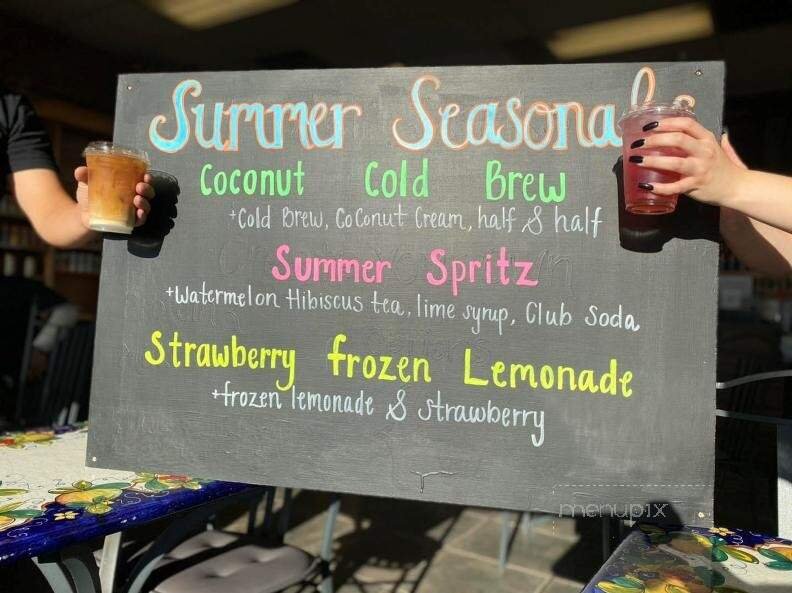 Summer Seasonals
Coconut Cold Brew
+Cold Brew, Coconut Cream, half & half
Summer Spritz
+Watermelon Hibiscus tea, lime syrup, Club Soda
Strawberry frozen Lemonade
+frozen lemonade & strawberry
menupix